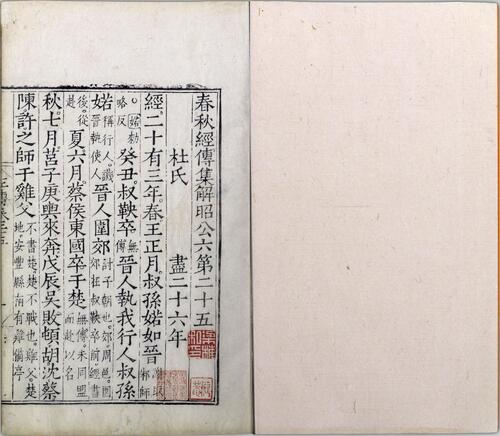 春秋經傳集解昭公六第二十五
杜氏 盡二十六年
經二十有三年春王正月叔孫婼如晉 謝取邾師
婼勑略反 癸丑叔鞅卒 無傳 晉人執我行人叔孫
婼 稱行人譏晉執使人 晉人圍郊 討子朝也郊周邑圍郊在叔鞅卒前經書
後從赴 夏六月蔡侯東國卒于楚 無傳未同盟而赴以名
秋七月莒子庚輿來奔戊辰吳敗頓胡沈蔡
陳許之師于雞父 不書楚楚不戰也雞父楚地安豐縣南有雞備亭